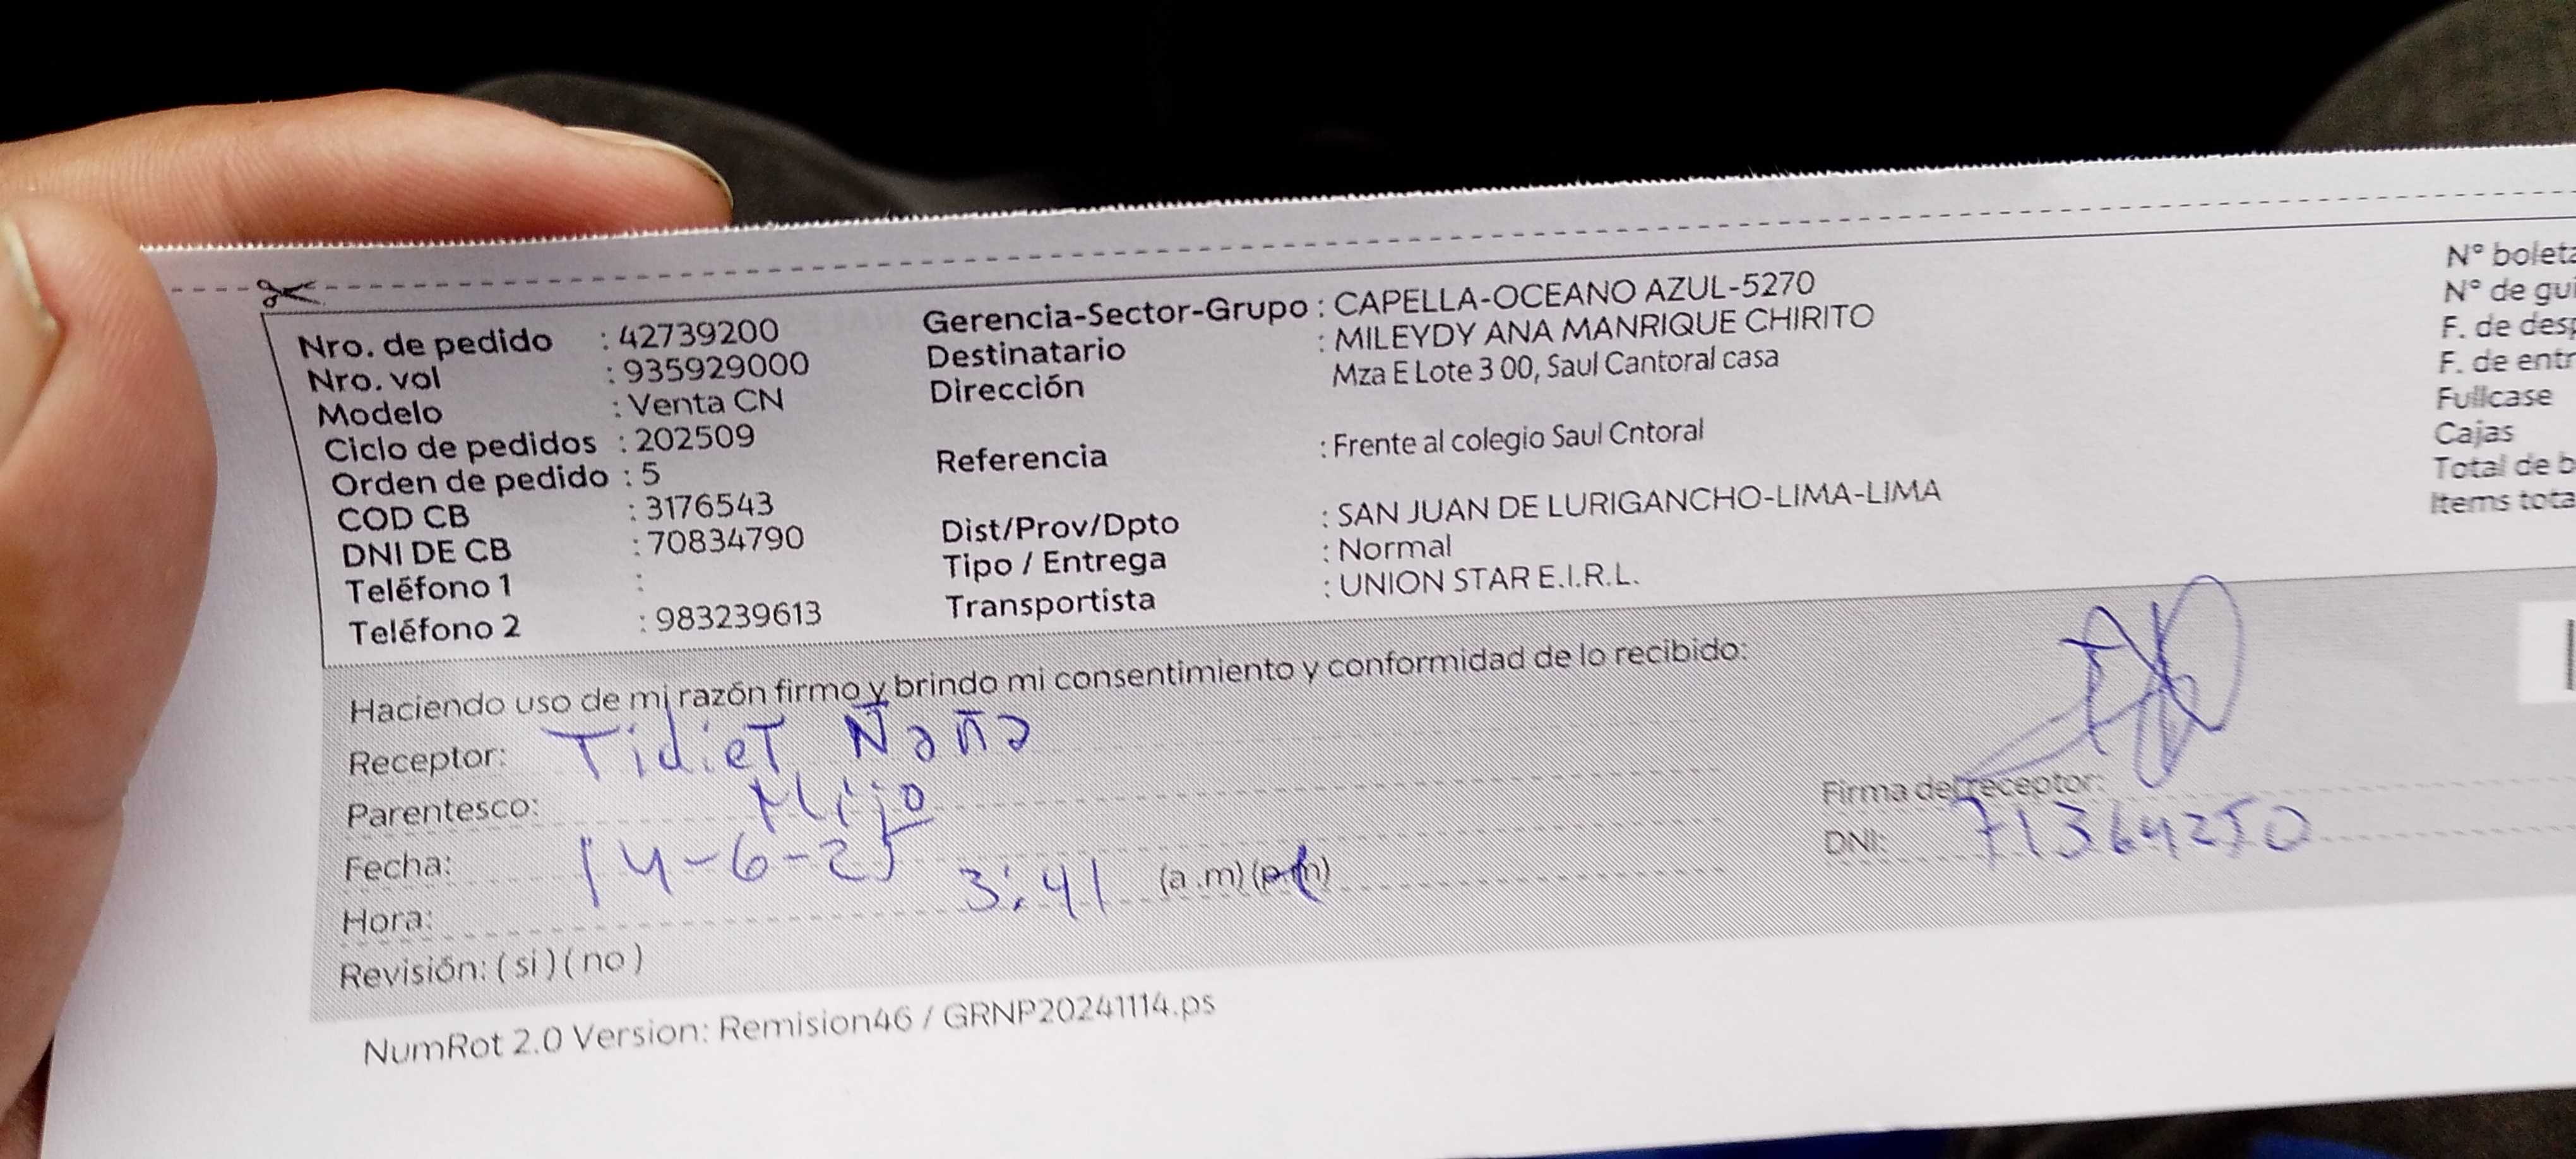 Nro. de pedido : 42739200
Nro. vol : 935929000
Modelo : Venta CN
Ciclo de pedidos : 202509
Orden de pedido : 5
COD CB : 3176543
DNI DE CB : 70834790
Teléfono 1 :
Teléfono 2 : 983239613
Gerencia-Sector-Grupo : CAPELLA-OCEANO AZUL-5270
Destinatario : MILEYDY ANA MANRIQUE CHIRITO
Dirección Mza E Lote 3 00, Saul Cantoral casa
Referencia : Frente al colegio Saul Cntoral
Dist/Prov/Dpto : SAN JUAN DE LURIGANCHO-LIMA-LIMA
Tipo / Entrega : Normal
Transportista : UNION STAR E.I.R.L.
N° boleta
N° de gui
F. de desp
F. de entr
Fullcase
Cajas
Total de b
Items tota
Haciendo uso de mi razón firmo y brindo mi consentimiento y conformidad de lo recibido:
Receptor: Tidiet Ñaña
Parentesco: Hijo
Fecha: 14-6-25
Hora: 3:41 (a.m)(p.m)
Revisión: (si)(no)
Firma del receptor:
DNI: 71364250
NumRot 2.0 Version: Remision46 / GRNP20241114.ps